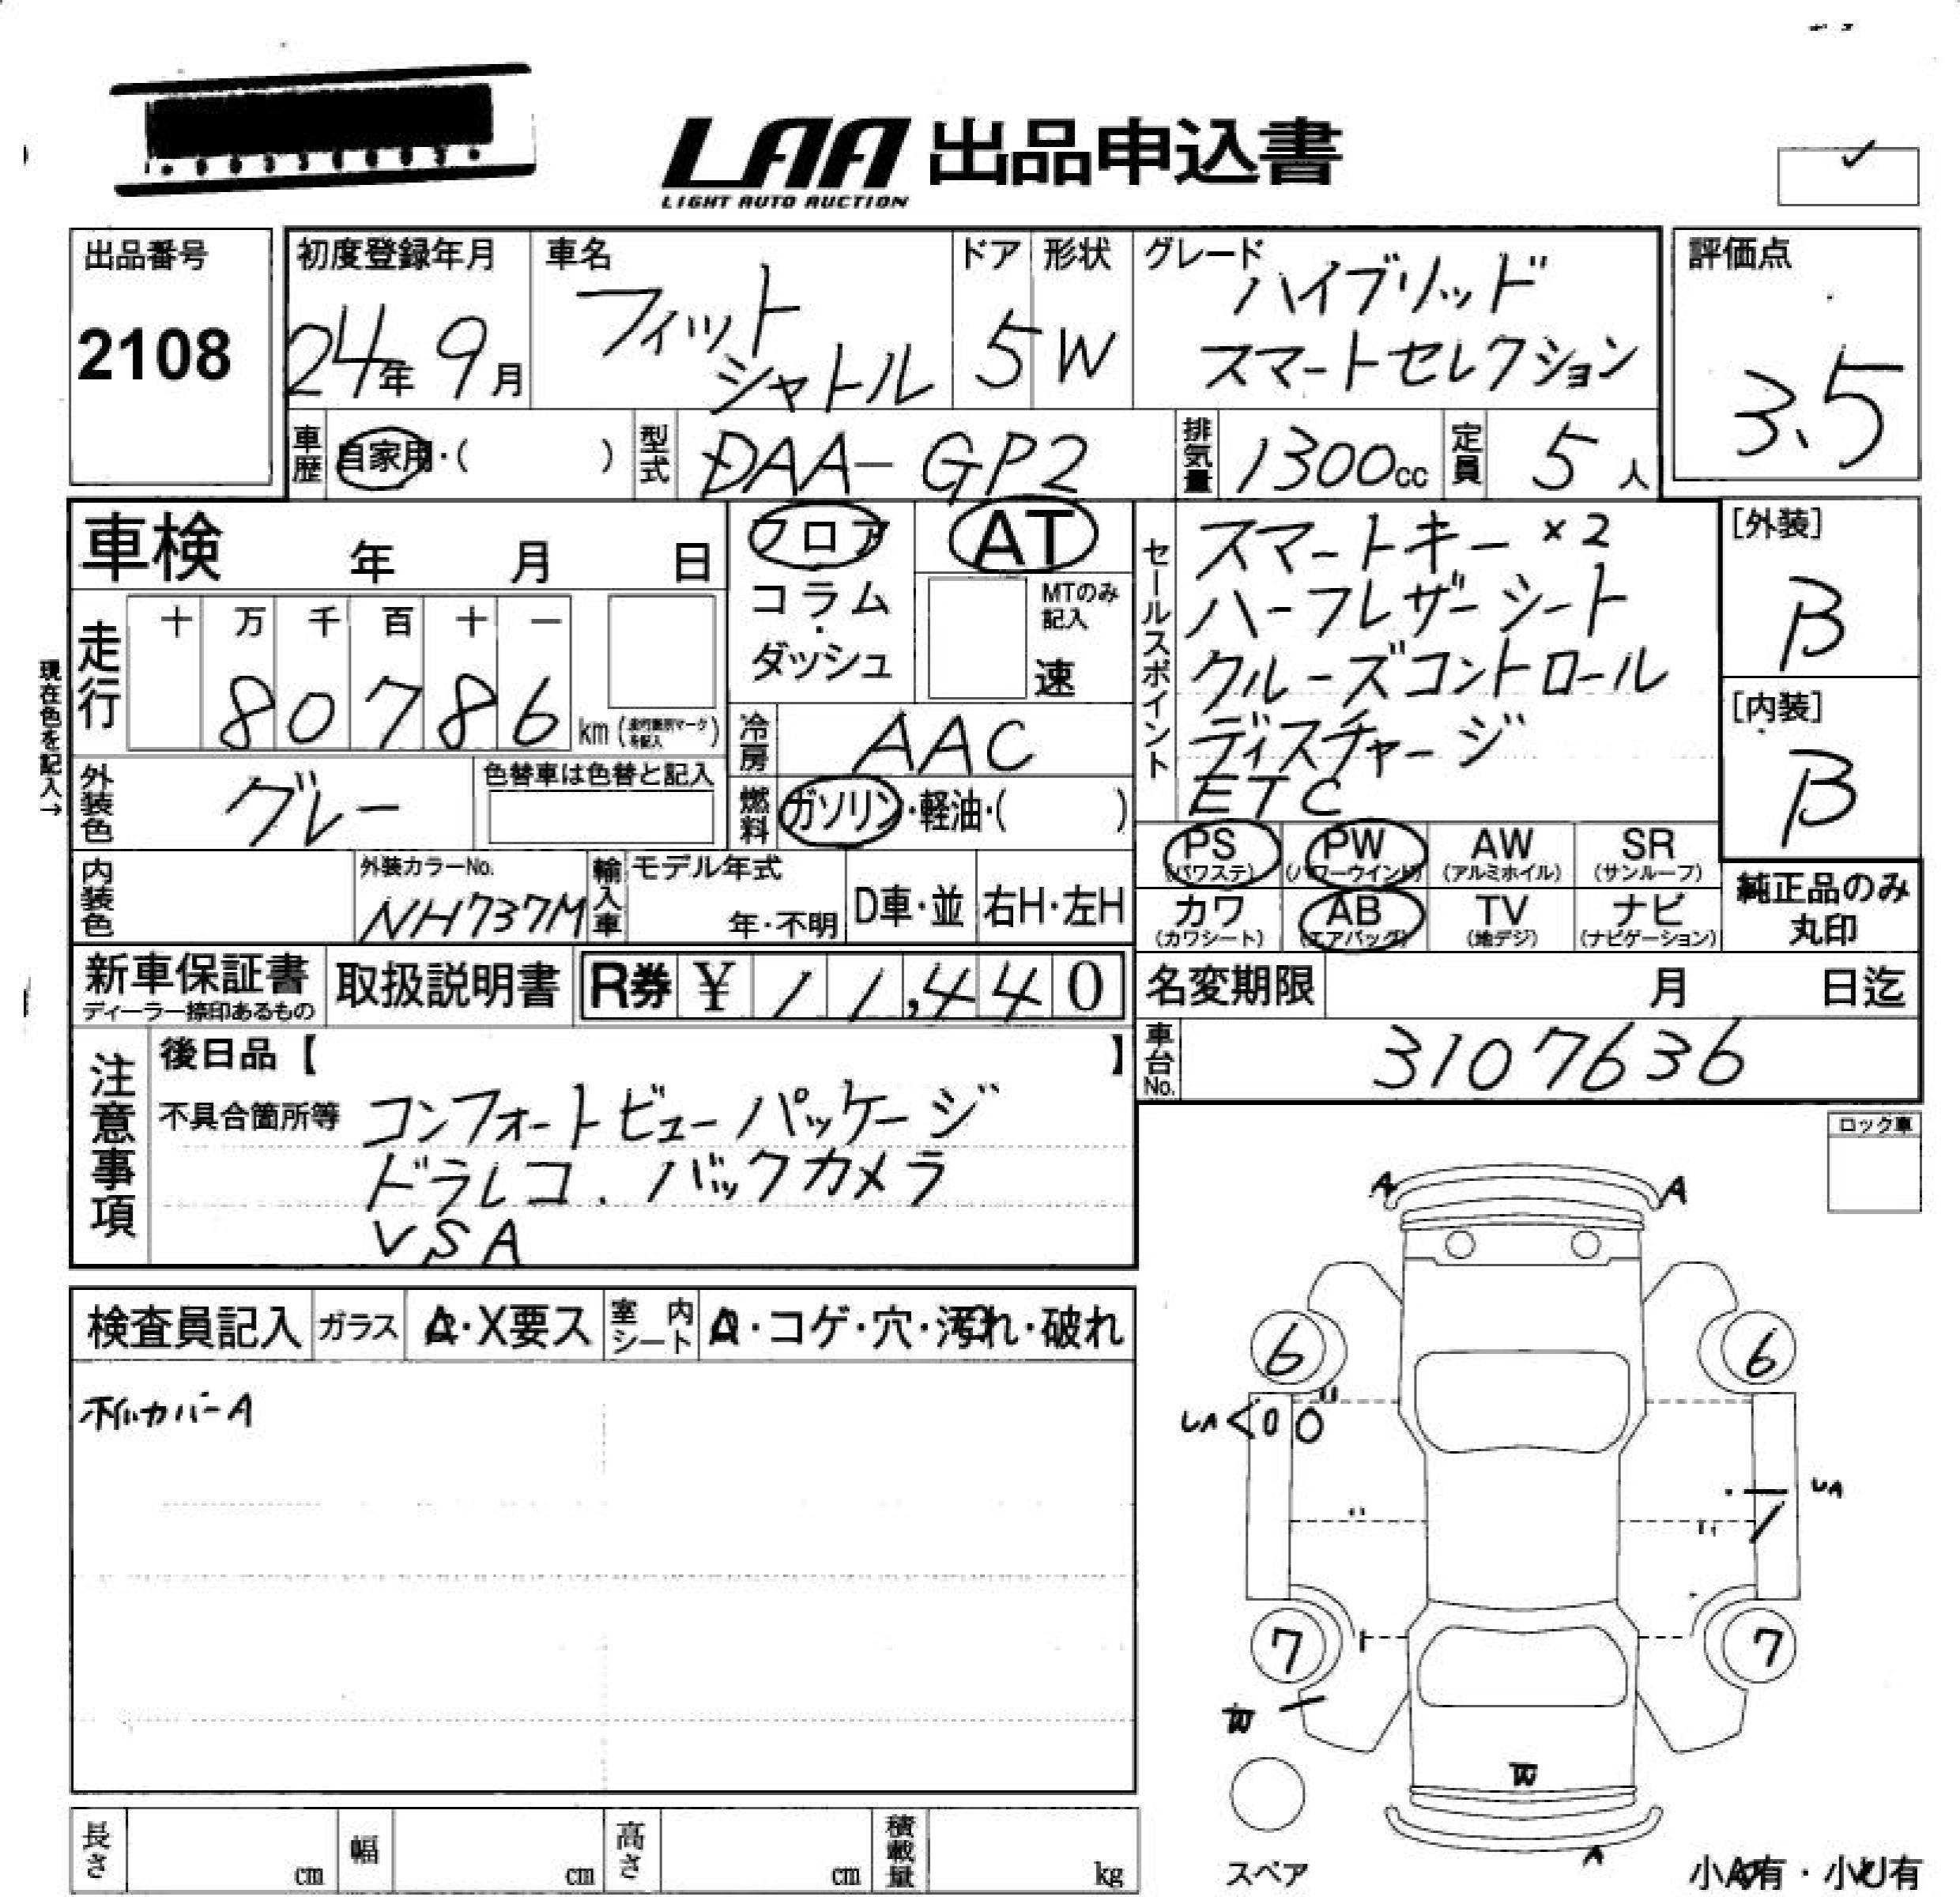 LAA 出品申込書
LIGHT AUTO AUCTION
出品番号
2108
初度登録年月
24年 9月
車名
フィット
シャトル
ドア
5
形状
W
グレード
ハイブリッド
スマートセレクション
評価点
3.5
車歴
自家用・( )
型式
DAA-GP2
排気量
1300cc
定員
5人
車検 年 月 日
走行
十 万 千 百 十 一
8 0 7 8 6
km
現在色を記入→
外装色
グレー
色替車は色替と記入
フロア
コラム
・
ダッシュ
AT
MTのみ
記入
速
冷房
AAC
燃料
ガソリン・軽油・( )
セールスポイント
スマートキー ×2
ハーフレザーシート
クルーズコントロール
ディスチャージ
ETC
[外装]
B
[内装]
B
PS
(パワステ)
PW
(パワーウインド)
AW
(アルミホイル)
SR
(サンルーフ)
カワ
(カワシート)
AB
(エアバッグ)
TV
(地デジ)
ナビ
(ナビゲーション)
純正品のみ
丸印
内装色
外装カラーNo.
NH737M
輸入車
モデル年式
年・不明
D車・並
右H・左H
新車保証書
ディーラー捺印あるもの
取扱説明書
R券 ¥ 11,440
名変期限 月 日迄
車台No.
3107636
注意事項
後日品【 】
不具合箇所等
コンフォートビューパッケージ
ドラレコ. バックカメラ
VSA
ロック車
検査員記入
ガラス
・X要ス
室内シート
・コゲ・穴・汚れ・破れ
ホイルカバーA
A A
6 6
UA
UA
7 7
W
W
A
スペア
小A有・小U有
長さ cm
幅 cm
高さ cm
積載量 kg